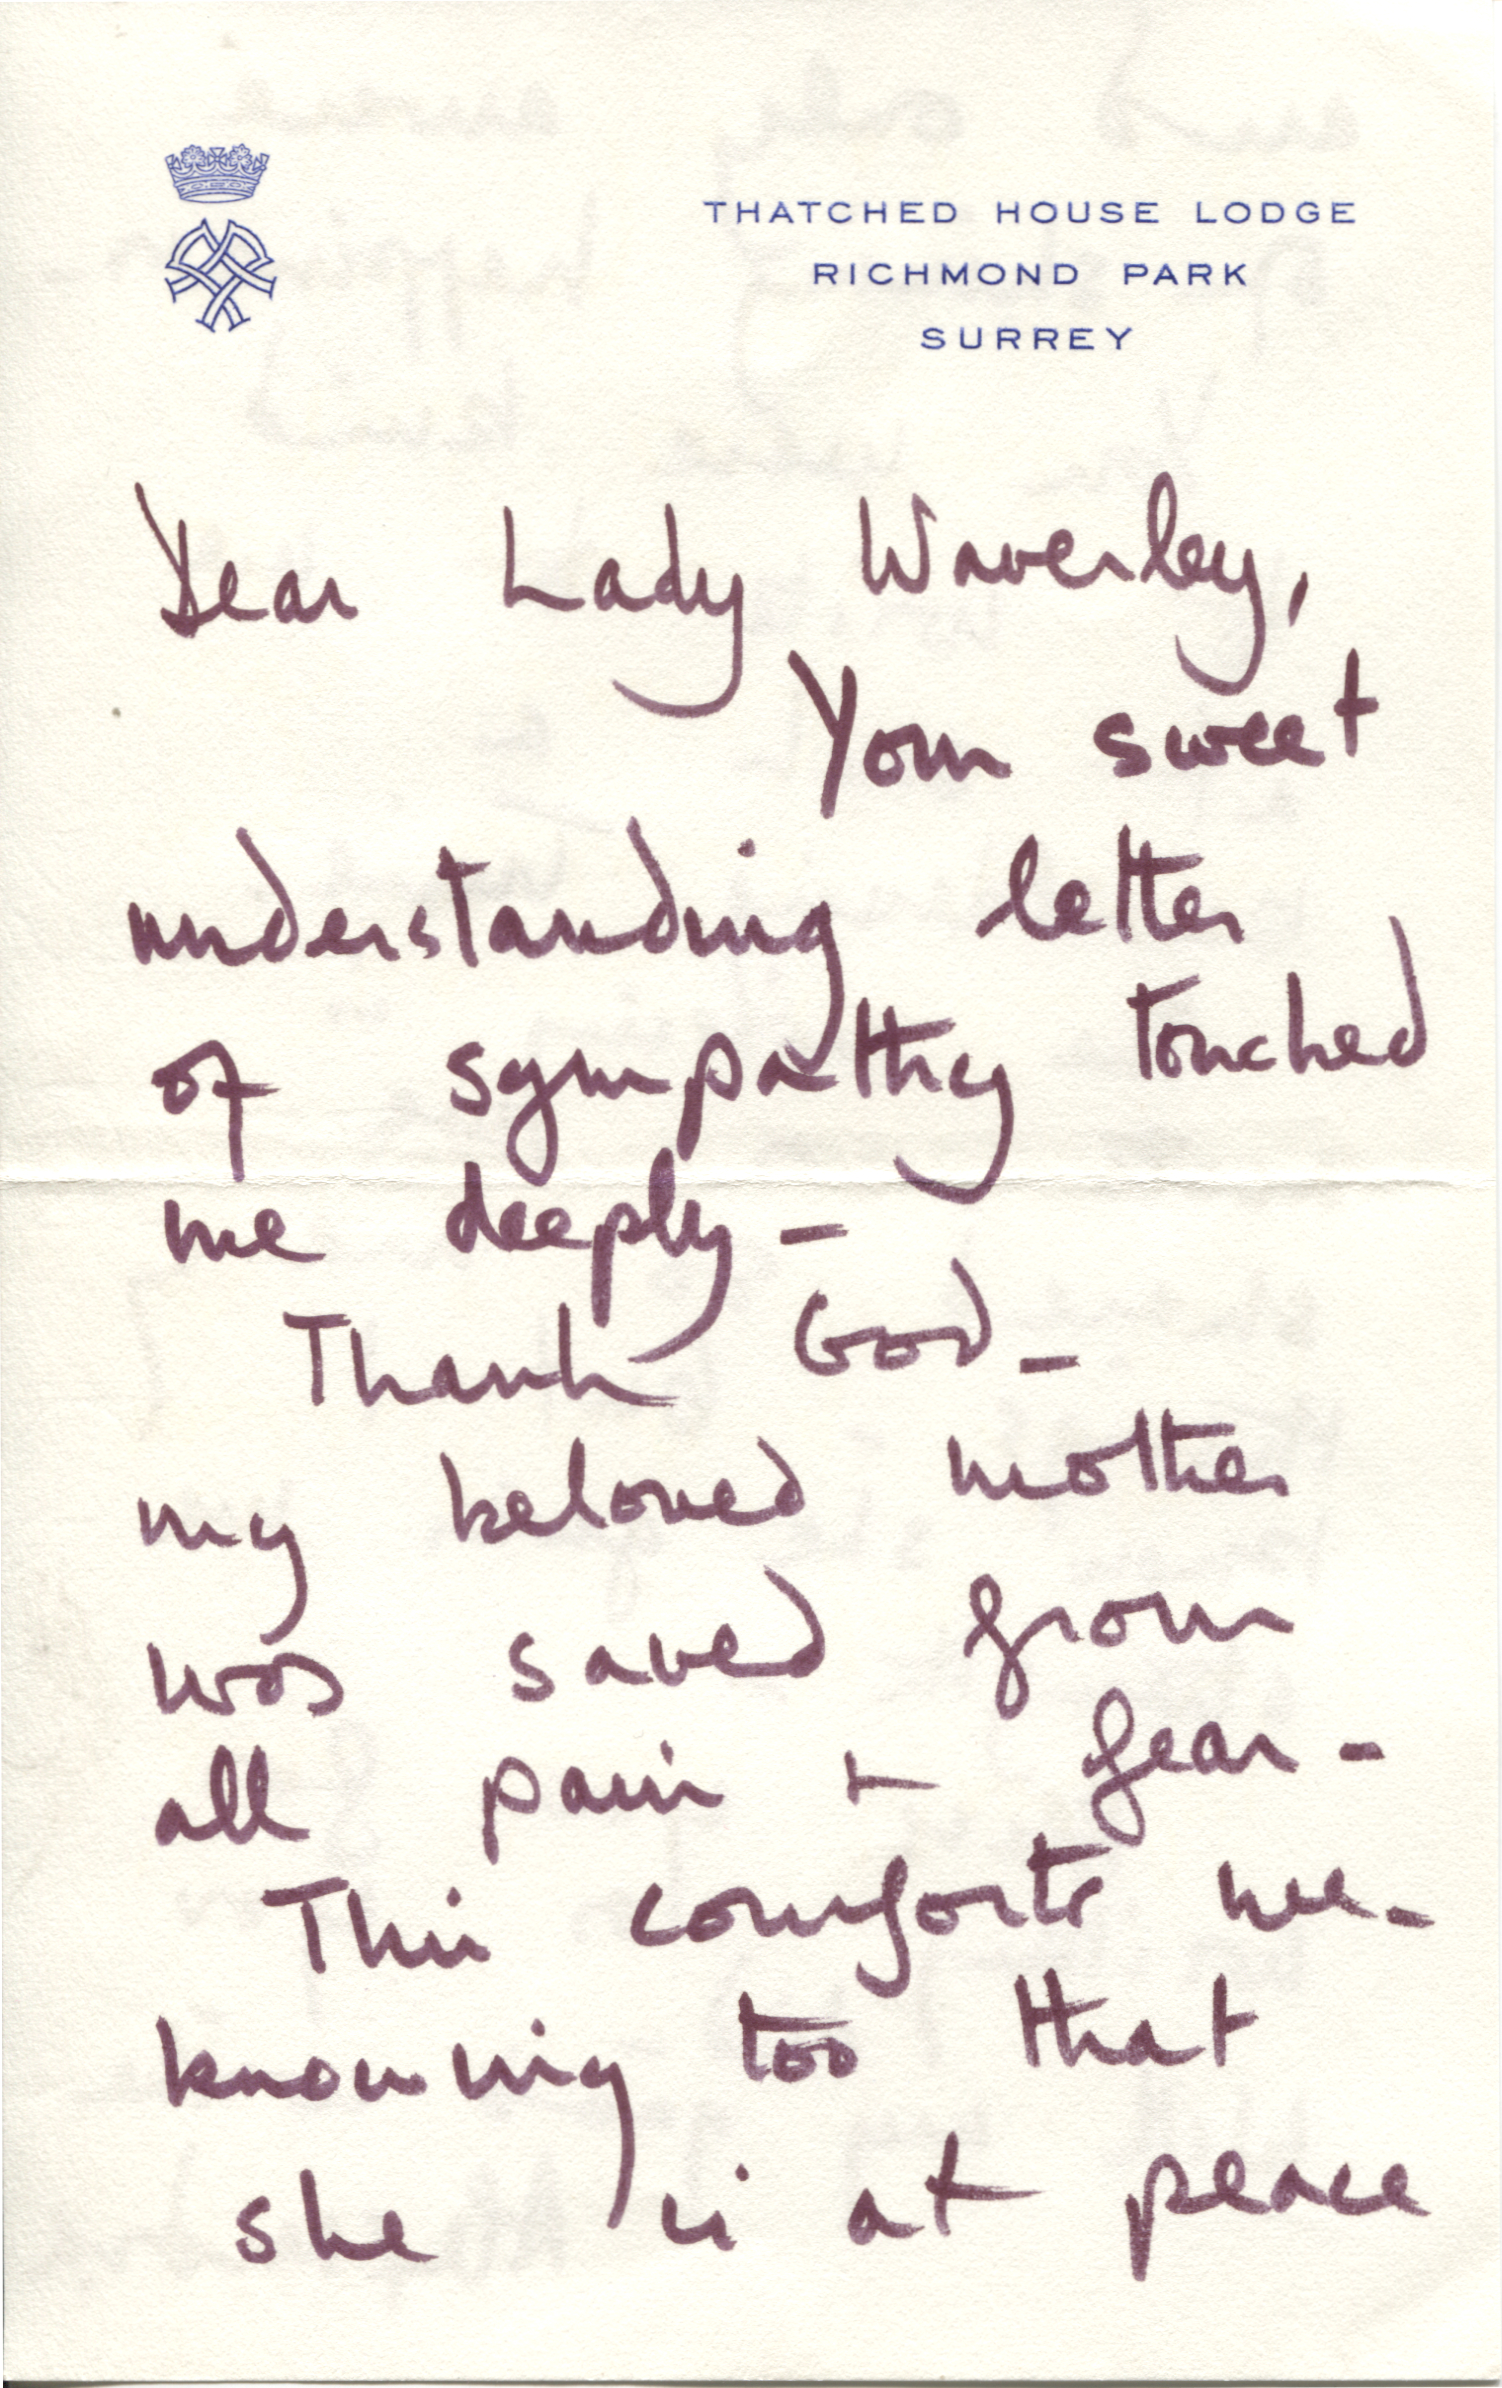 THATCHED HOUSE LODGE
RICHMOND PARK
SURREY
Dear Lady Waverley,
Your sweet
understanding letter
of sympathy touched
me deeply –
Thank God –
my beloved mother
was saved from
all pain & fear –
This comforts me –
knowing too that
she is at peace